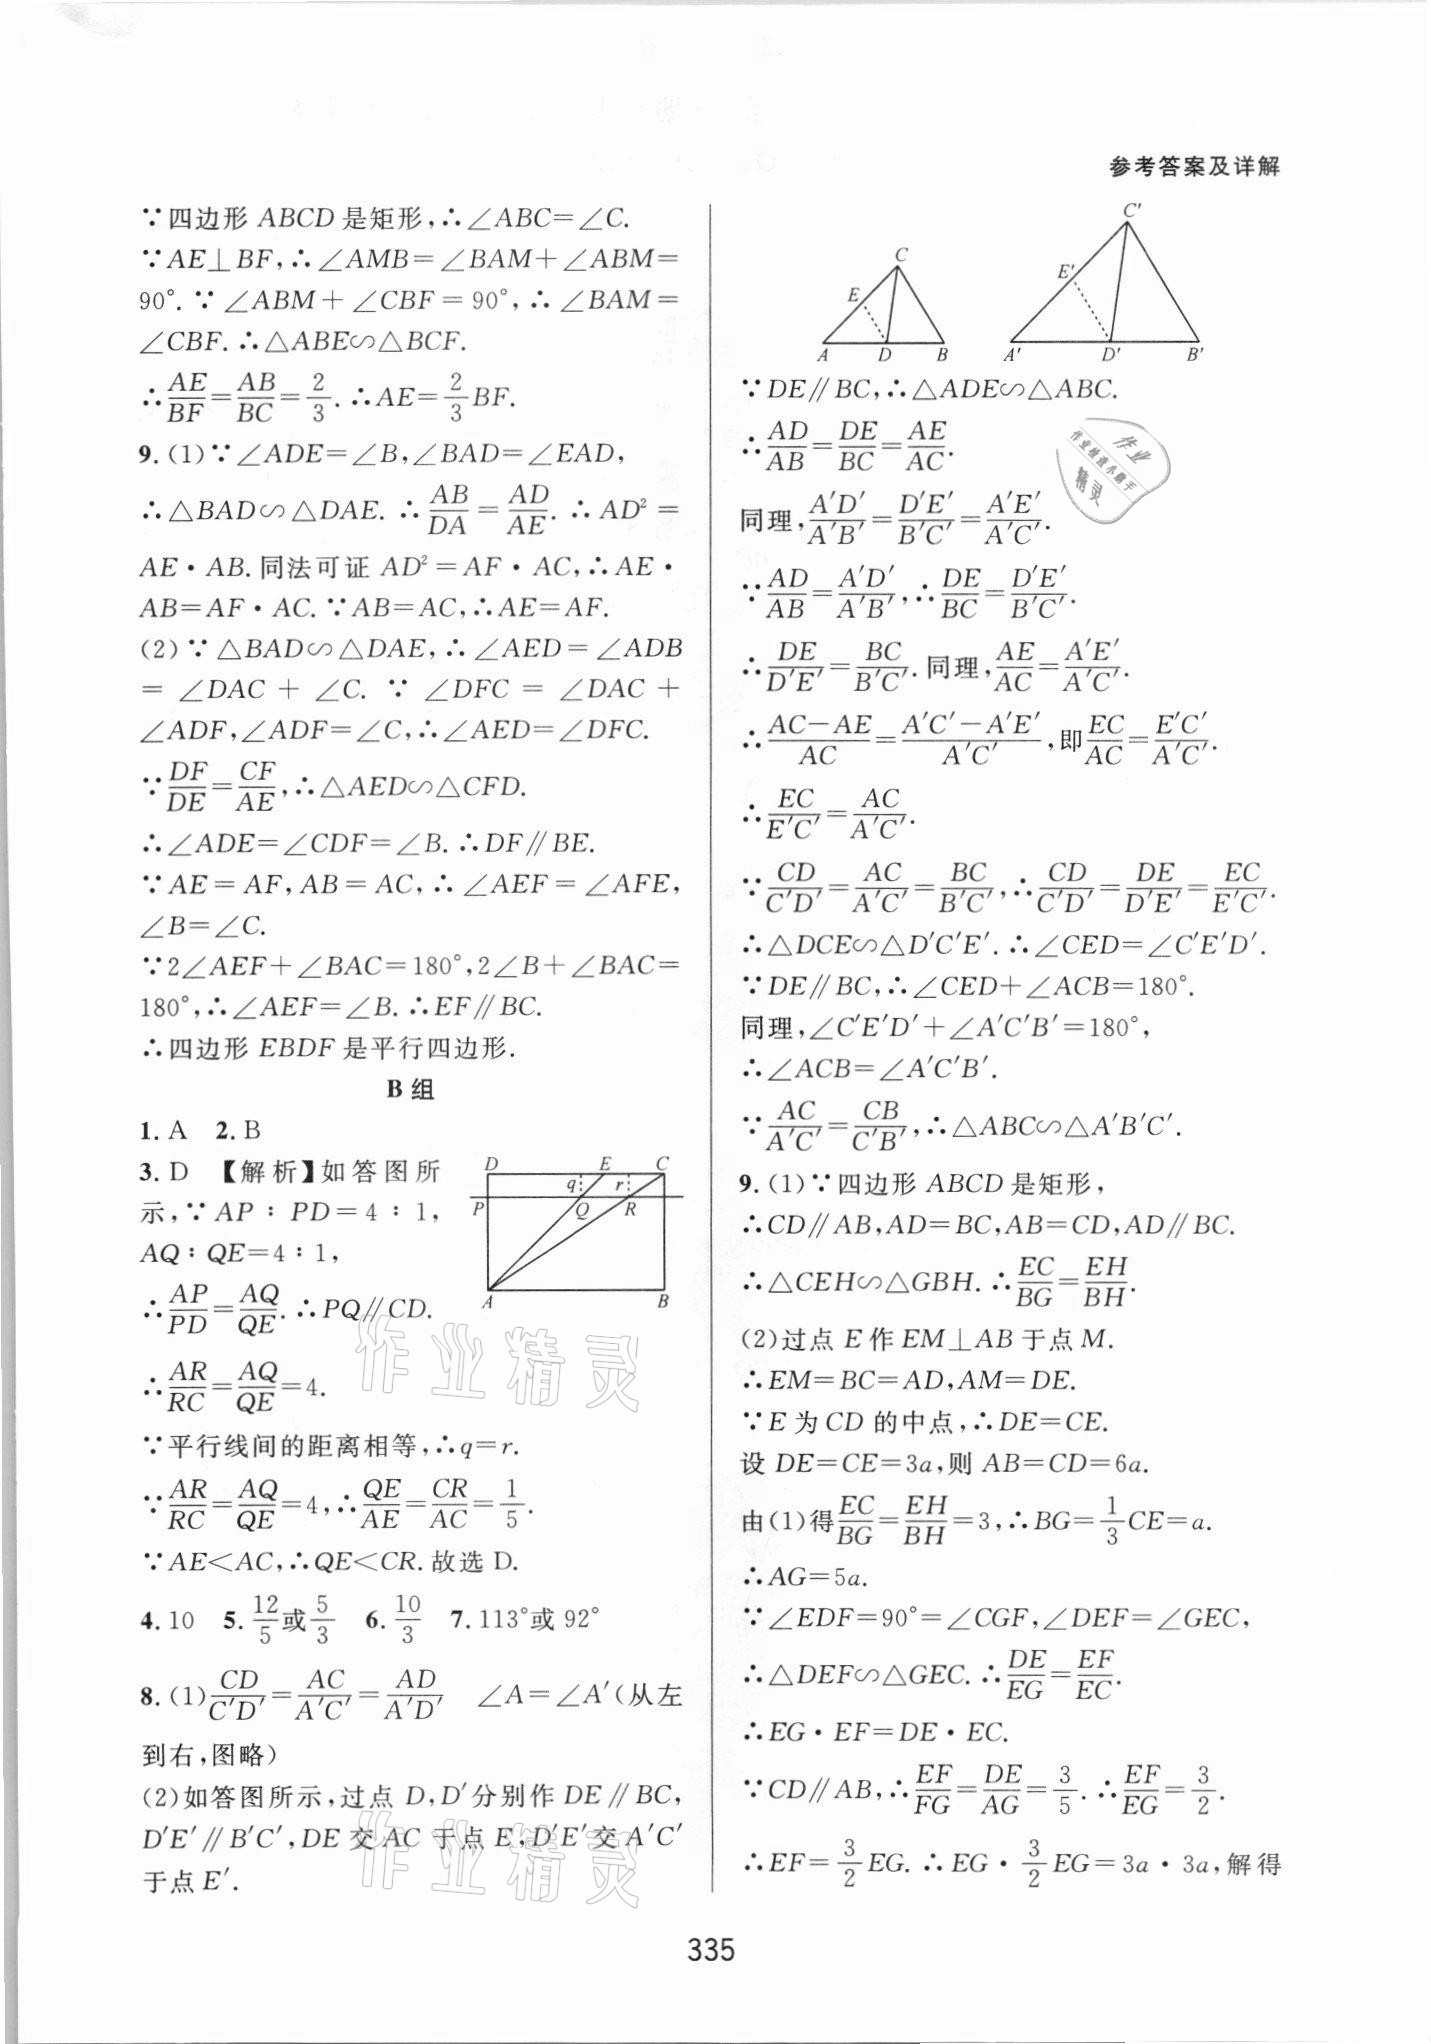 参考答案及详解
∵四边形 ABCD 是矩形,∴∠ABC=∠C.
∵AE⊥BF,∴∠AMB=∠BAM+∠ABM=
90°. ∵∠ABM+∠CBF=90°,∴∠BAM=
∠CBF. ∴△ABE∽△BCF.
∴AE/BF=AB/BC=2/3. ∴AE=2/3BF.
9. (1)∵∠ADE=∠B,∠BAD=∠EAD,
∴△BAD∽△DAE. ∴AB/DA=AD/AE. ∴AD²=
AE·AB. 同法可证 AD²=AF·AC,∴AE·
AB=AF·AC. ∵AB=AC,∴AE=AF.
(2)∵△BAD∽△DAE,∴∠AED=∠ADB
=∠DAC+∠C. ∵∠DFC=∠DAC+
∠ADF,∠ADF=∠C,∴∠AED=∠DFC.
∵DF/DE=CF/AE,∴△AED∽△CFD.
∴∠ADE=∠CDF=∠B. ∴DF∥BE.
∵AE=AF,AB=AC,∴∠AEF=∠AFE,
∠B=∠C.
∵2∠AEF+∠BAC=180°,2∠B+∠BAC=
180°,∴∠AEF=∠B. ∴EF∥BC.
∴四边形 EBDF 是平行四边形.
B 组
1. A 2. B
3. D 【解析】如答图所
示,∵AP∶PD=4∶1,
AQ∶QE=4∶1,
∴AP/PD=AQ/QE. ∴PQ∥CD.
∴AR/RC=AQ/QE=4.
D E C
q r
P Q R
A B
∵平行线间的距离相等,∴q=r.
∵AR/RC=AQ/QE=4,∴QE/AE=CR/AC=1/5.
∵AE<AC,∴QE<CR. 故选 D.
4. 10 5. 12/5或5/3 6. 10/3 7. 113°或 92°
8. (1)CD/C′D′=AC/A′C′=AD/A′D′ ∠A=∠A′(从左
到右,图略)
(2)如答图所示,过点 D,D′分别作 DE∥BC,
D′E′∥B′C′,DE 交 AC 于点 E,D′E′交 A′C′
于点 E′.
C E A D B
C′ E′ A′ D′ B′
∵DE∥BC,∴△ADE∽△ABC.
∴AD/AB=DE/BC=AE/AC.
同理,A′D′/A′B′=D′E′/B′C′=A′E′/A′C′.
∵AD/AB=A′D′/A′B′,∴DE/BC=D′E′/B′C′.
∴DE/D′E′=BC/B′C′. 同理,AE/AC=A′E′/A′C′.
∴(AC-AE)/AC=(A′C′-A′E′)/A′C′,即EC/AC=E′C′/A′C′.
∴EC/E′C′=AC/A′C′.
∵CD/C′D′=AC/A′C′=BC/B′C′,∴CD/C′D′=DE/D′E′=EC/E′C′.
∴△DCE∽△D′C′E′. ∴∠CED=∠C′E′D′.
∵DE∥BC,∴∠CED+∠ACB=180°.
同理,∠C′E′D′+∠A′C′B′=180°,
∴∠ACB=∠A′C′B′.
∵AC/A′C′=CB/C′B′,∴△ABC∽△A′B′C′.
9. (1)∵四边形 ABCD 是矩形,
∴CD∥AB,AD=BC,AB=CD,AD∥BC.
∴△CEH∽△GBH. ∴EC/BG=EH/BH.
(2)过点 E 作 EM⊥AB 于点 M.
∴EM=BC=AD,AM=DE.
∵E 为 CD 的中点,∴DE=CE.
设 DE=CE=3a,则 AB=CD=6a.
由(1)得EC/BG=EH/BH=3,∴BG=1/3CE=a.
∴AG=5a.
∵∠EDF=90°=∠CGF,∠DEF=∠GEC,
∴△DEF∽△GEC. ∴DE/EG=EF/EC.
∴EG·EF=DE·EC.
∵CD∥AB,∴EF/FG=DE/AG=3/5. ∴EF/EG=3/2.
∴EF=3/2EG. ∴EG·3/2EG=3a·3a,解得
作业
作业检查小助手
精灵
作业精灵
作业精灵
335